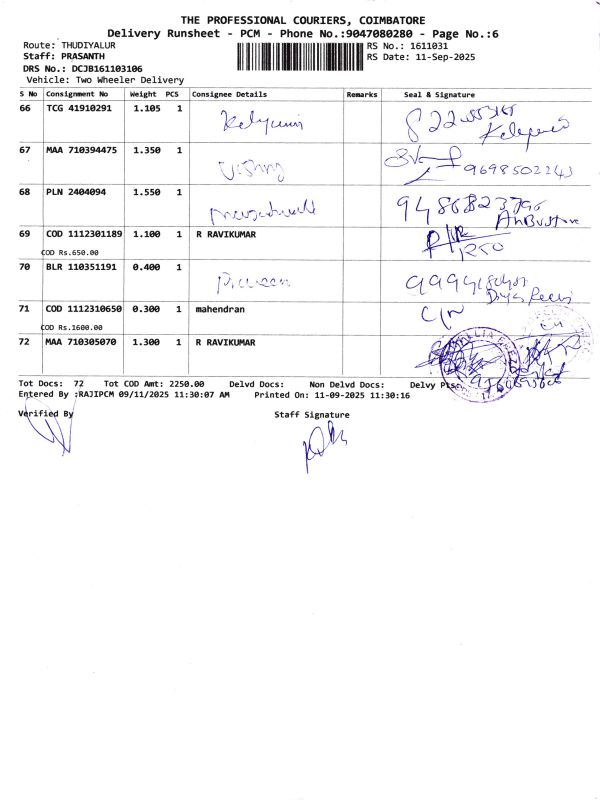 THE PROFESSIONAL COURIERS, COIMBATORE
Delivery Runsheet - PCM - Phone No.:9047080280 - Page No.:6
Route: THUDIYALUR RS No.: 1611031
Staff: PRASANTH RS Date: 11-Sep-2025
DRS No.: DCJB161103106
Vehicle: Two Wheeler Delivery
S No Consignment No Weight PCS Consignee Details Remarks Seal & Signature
66 TCG 41910291 1.105 1
67 MAA 710394475 1.350 1 9698502243
68 PLN 2404094 1.550 1
69 COD 1112301189 1.100 1 R RAVIKUMAR
COD Rs.650.00
70 BLR 110351191 0.400 1 Praveen
71 COD 1112310650 0.300 1 mahendran
COD Rs.1600.00
72 MAA 710305070 1.300 1 R RAVIKUMAR
Tot Docs: 72 Tot COD Amt: 2250.00 Delvd Docs: Non Delvd Docs: Delvy Pts:
Entered By :RAJIPCM 09/11/2025 11:30:07 AM Printed On: 11-09-2025 11:30:16
Verified By Staff Signature